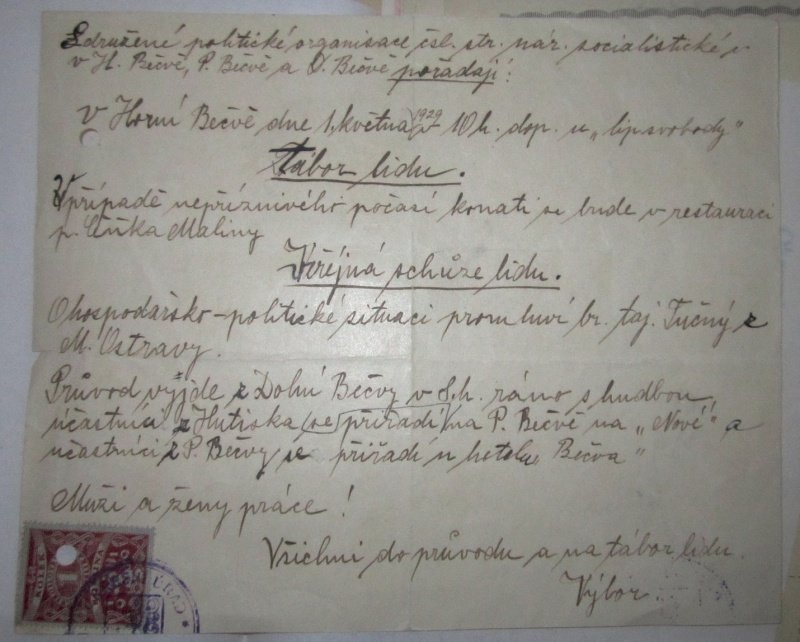 Sdružené politické organisace čsl. str. nár. socialistické
v H. Bečvě, P. Bečvě a D. Bečvě pořádají:
v Horní Bečvě dne 1. května 1929 v 10 h. dop. u „lip svobody“
Tábor lidu.
V případě nepříznivého počasí konati se bude v restauraci
p. Maliny
Veřejná schůze lidu.
O hospodářsko-politické situaci promluví br. taj. Tučný z
M. Ostravy.
Průvod vyjde z Dolní Bečvy v 8 h. ráno s hudbou,
účastníci z Hutiska (se přiřadí) na P. Bečvě na „Nové“ a
účastníci z P. Bečvy se přiřadí u hotelu Bečva“
Muži a ženy práce!
Všichni do průvodu a na tábor lidu.
Výbor.
KOLEK
1